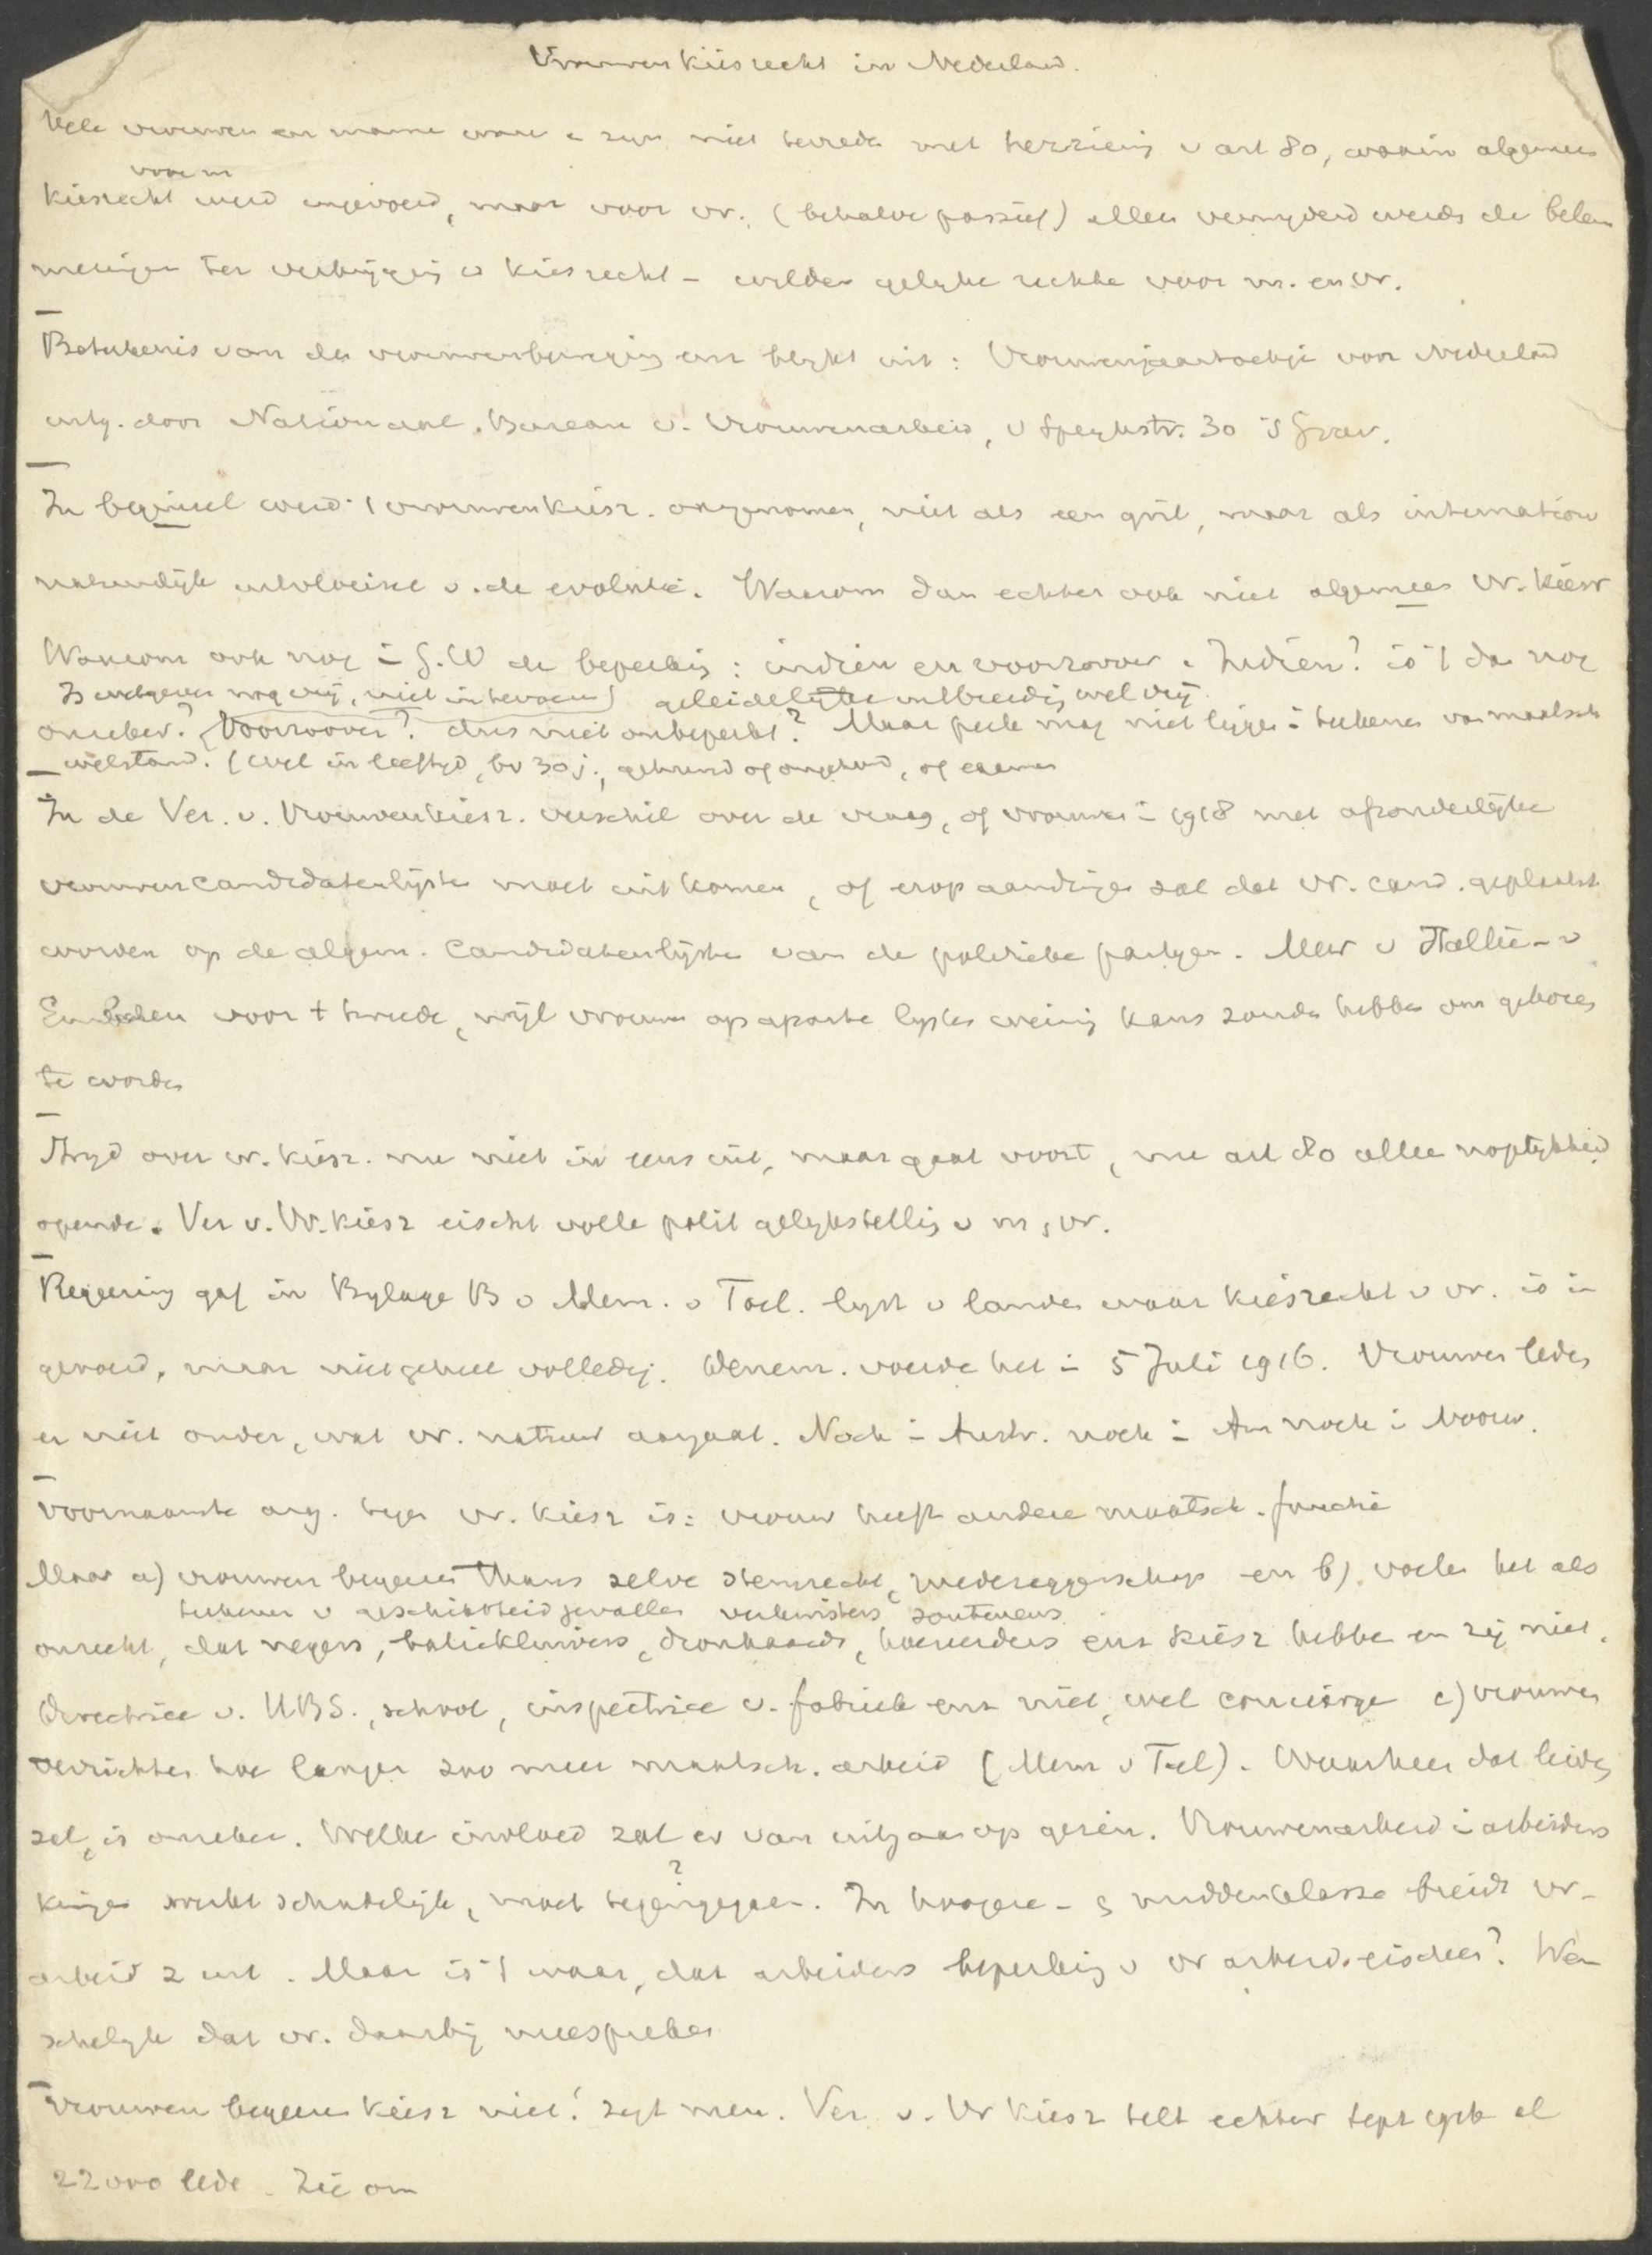 Vrouwenkiesrecht in Nederland.
Vele vrouwen en manne ware e zyn niet tevrede met herziening v art 80, waarin algemeen
voor m
kiesrecht werd ingevoerd, maar voor vr. (behalve passief) alleen verwyderd werds de belem
meringen ter verkrijging v kiesrecht – wilden gelyke rechte voor m. en vr.
Betekenis van de vrouwenbeweging enz blykt uit: Vrouwenjaarboekje voor Nederland
uitg. door Nationaal Bureau v. Vrouwenarbeid, v Speykstr. 30 's Grav.
In beginsel werd 't vrouwenkiesr. aangenomen, niet als een gril, maar als internation
natuurlijk uitvloeisel v. de evolutie. Waarom dan echter ook niet algemeen vr. kiesr
Waarom ook nog i G.W de beperking: indien en voorzoover. Indien? is 't dan nog
Is wetgever nog vrij, niet in te voeren? geleidelijke uitbreidg wel vrij
onzeker? Voorzoover? dus niet onbeperkt? Maar perk mag niet ligge i teekenen van maatsch
welstand. (wel in leeftyd, bv 30 j., gehuwd of ongehuwd, of examen
In de Ver. v. Vrouwenkiesr. verschil over de vraag, of vrouwen i 1918 met afzonderlijke
vrouwencandidatenlijsten moet uitkomen, of erop aandringe zal dat vr. cand. geplaatst
worden op de algem. Candidatenlijste van de politieke partyen. Mevr v Italie - v
Embden voor t tweede, wijl vrouwe op aparte lystes weinig kans zoude hebbe om gekozen
te worde
Stryd over vr. kiesr. nu niet in eens uit, maar gaat voort, nu art 80 allee mogelykheid
opende. Ver v. Vr. kiesr eischt volle polit gelykstellig v m, vr.
Regeering gaf in Bylage B v Mem. v Toel. lyst v lande waar kiesrecht v vr. is in
gevoerd, maar niet geheel volledig. Denem. voerde het i 5 Juli 1916. Vrouwen leden
er niet onder, wat vr. natuur aangaat. Noch i Austr. noch i Am noch i Noorw.
Voornaamste arg. tege vr. kiesr is: vrouw heeft andere maatsch. functie
Maar a) vrouwen begeeren thans zelve stemrecht, medezeggenschap en b) voelen het als
teekenen v geschiktheid gevallen verkwisters souteneurs
onrecht, dat negers, baliekluivers, dronkaards, hoereerders enz kiesr hebbe en zij niet.
Directrice v. HBS., school, inspectrice v. fabriek enz niet, wel concierge c) vrouwen
verrichten hoe langer zoo meer maatsch. arbeid (Mem v Toel). Waarheen dat leiden
zal, is onzeker. Welke invloed zal er van uitgaan op gezin. Vrouwenarbeid i arbeiders
kringe werkt schadelijk, moet tegengegaan. ? In hoogere - & middenklasse breidt vr-
arbeid z uit. Maar is 't waar, dat arbeiders beperking v vr arbeid eischen? Wen
schelyk dat vr. daarbij meespreken
Vrouwen begeeren kiesr niet! zegt men. Ver. v. Vr kiesr telt echter sept 1916 al
22000 lede. Zie om